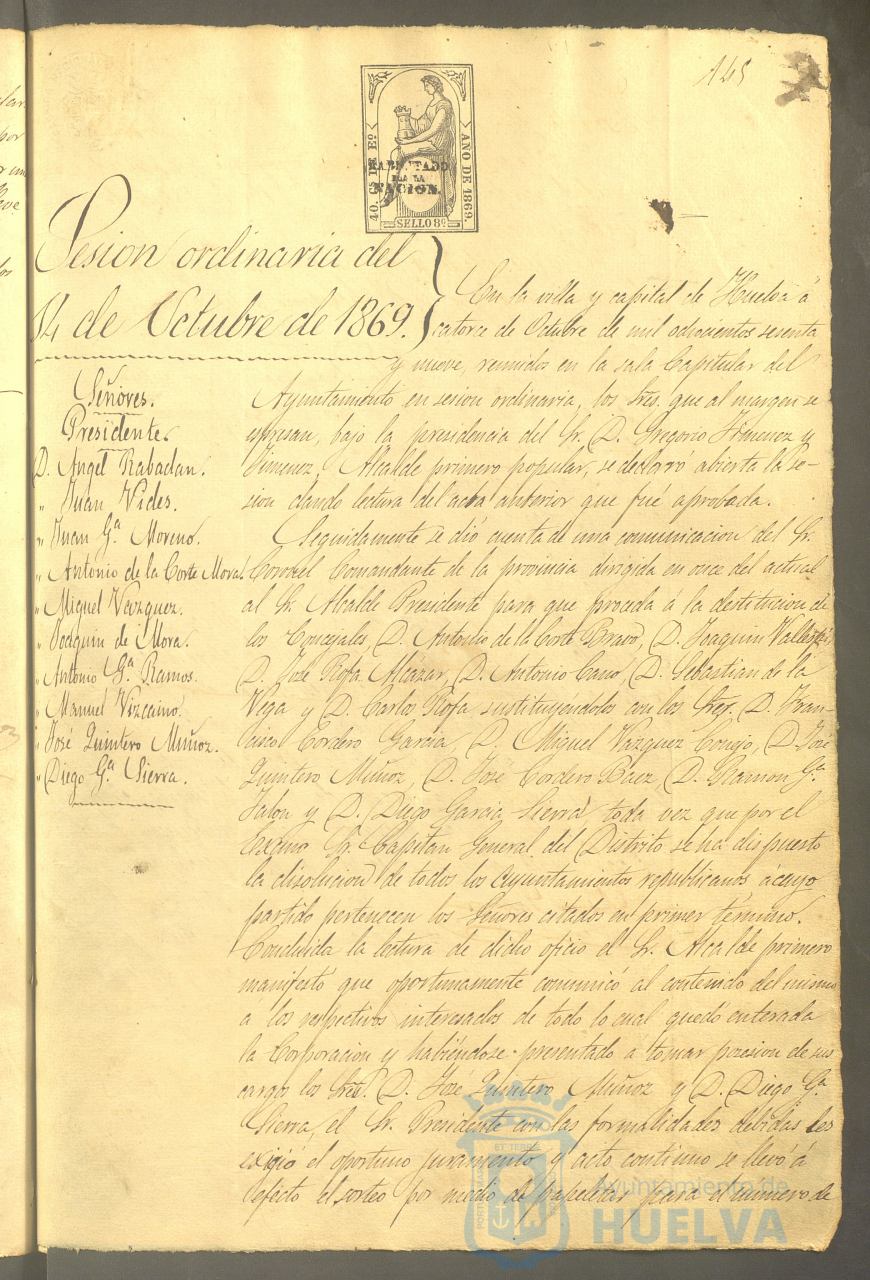 145
40. CS DE Eº
AÑO DE 1869.
HABILITADO
POR LA
NACION.
SELLO 8º
Sesion ordinaria del
14 de Octubre de 1869.
Señores.
Presidente.
D. Angel Rabadan.
" Juan Vides.
" Juan Gª Moreno.
" Antonio de la Corte Mora.
" Miguel Vazquez.
" Joaquin de Mora.
" Antonio Gª Ramos.
" Manuel Vizcaino.
" José Quintero Muñoz.
" Diego Gª Sierra.
En la villa y capital de Huelva á
catorce de Octubre de mil ochocientos sesenta
y nueve, reunidos en la sala Capitular del
Ayuntamiento en sesion ordinaria, los Sres. que al margen se
espresan, bajo la presidencia del Sr. D. Gregorio Jimenez y
Jimenez, Alcalde primero popular, se declaró abierta la se-
sion dando lectura del acta anterior que fue aprobada.
Seguidamente se dió cuenta de una comunicacion del Sr.
Coronel Comandante de la provincia dirigida en once del actual
al Sr. Alcalde Presidente para que proceda á la destitucion de
los Concejales, D. Antonio de la Corte Bravo, D. Joaquin
D. José Rofa Alcázar, D. Antonio Cano, D. Sebastian de la
Vega y D. Carlos Rofa sustituyéndolos con los Sres. D. Fran-
cisco Cordero Garcia, D. Miguel Vazquez Conejo, D. José
Quintero Muñoz, D. José Cordero Baez, D. Ramon Gª
Jalon y D. Diego Garcia Sierra toda vez que por el
Excmo Sr. Capitan General del Distrito se ha dispuesto
la disolucion de todos los Ayuntamientos republicanos á cuyo
partido pertenecen los Señores citados en primer término.
Concluida la lectura de dicho oficio el Sr. Alcalde primero
manifestó que oportunamente comunicó al contenido del mismo
a los respectivos interesados de todo lo cual quedó enterada
la Corporacion y habiéndose presentado a tomar posesion de sus
cargos los Sres. D. José Quintero Muñoz y D. Diego Gª
Sierra, el Sr. Presidente con las formalidades debidas les
exigió el oportuno juramento y acto continuo se llevó á
efecto el sorteo por medio de papeletas para el numero de
Ayuntamiento de
HUELVA